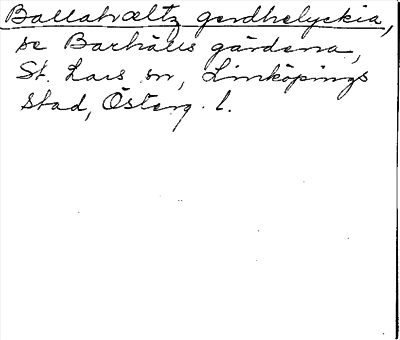 Ballahvaltz gerdhelyckia,
se Barhälls gårdarna,
St. Lars sn, Linköpings
stad, Österg. l.